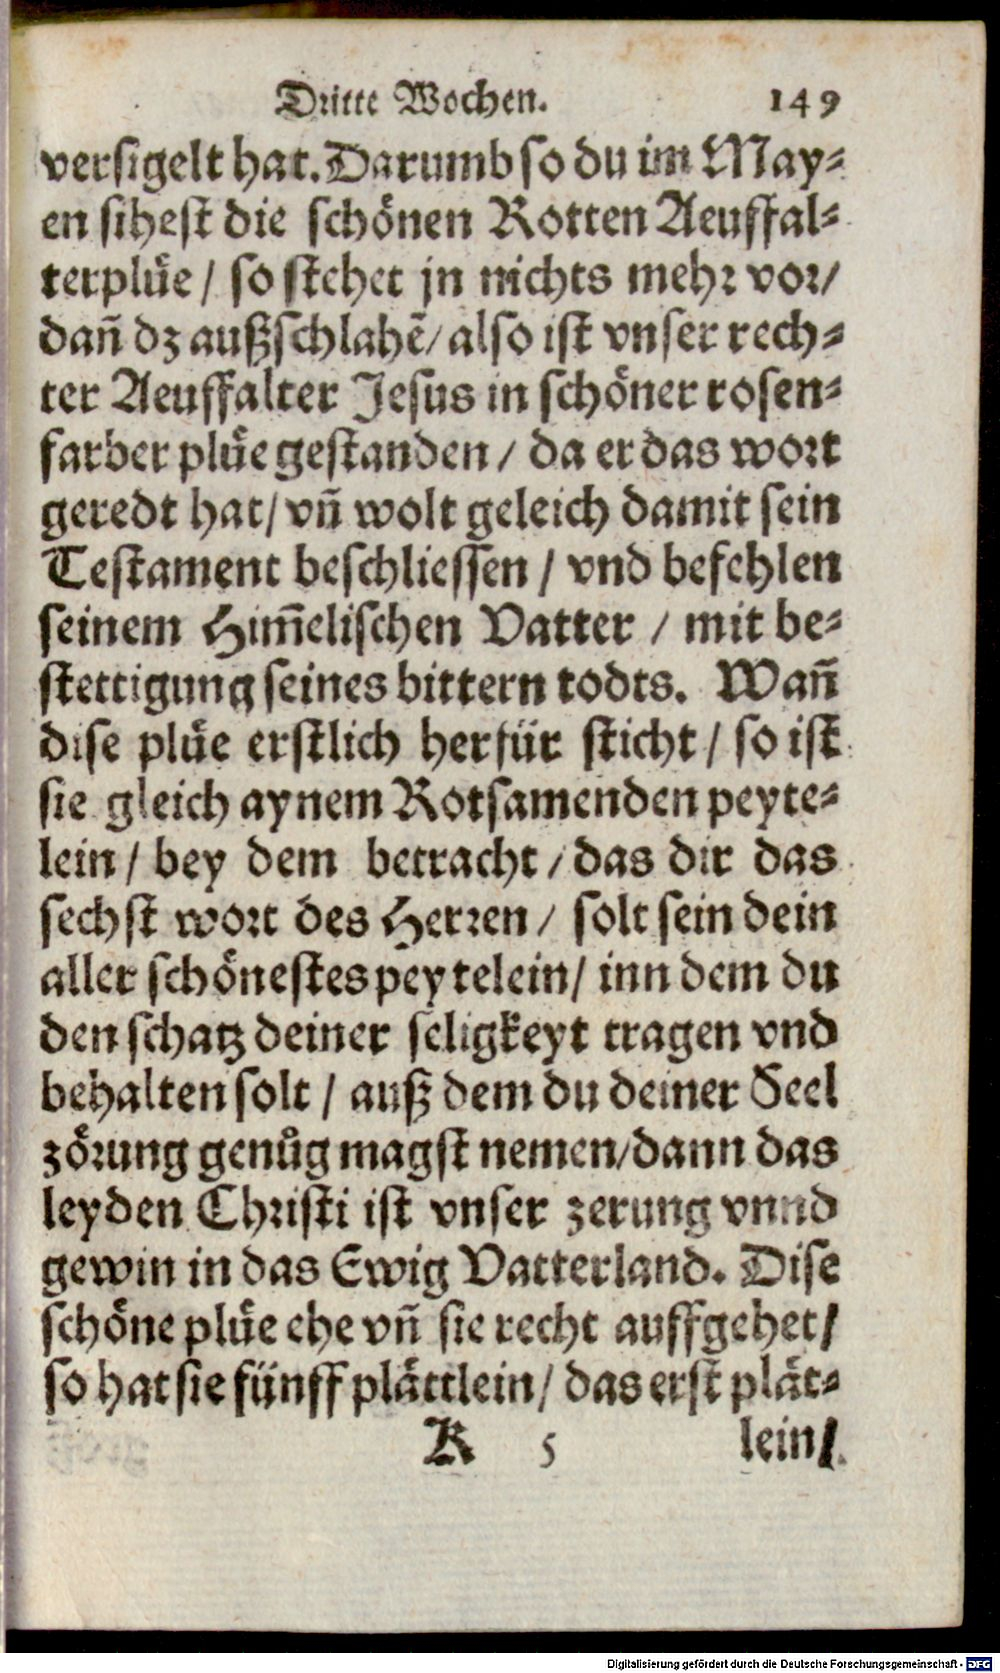 Dritte Wochen. 149
versigelt hat. Darumb so du im May-
en sihest die schönen Rotten Aeuffal-
terplüe / so stehet jn nichts mehr vor /
dañ dz außschlahẽ / also ist vnser rech-
ter Aeuffalter Jesus in schöner rosen-
farber plüe gestanden / da er das wort
geredt hat / vñ wolt geleich damit sein
Testament beschliessen / vnd befehlen
seinem Him̃elischen Vatter / mit be-
stettigung seines bittern todts. Wañ
dise plüe erstlich herfür sticht / so ist
sie gleich aynem Rotsamenden peyte-
lein / bey dem betracht / das dir das
sechst wort des Herren / solt sein dein
aller schönestes peytelein / inn dem du
den schatz deiner seligkeyt tragen vnd
behalten solt / auß dem du deiner Seel
zörung genůg magst nemen / dann das
leyden Christi ist vnser zerung vnnd
gewin in das Ewig Vatterland. Dise
schöne plüe ehe vñ sie recht auffgehet /
so hat sie fünff plättlein / das erst plät-
K 5 lein /
Digitalisierung gefördert durch die Deutsche Forschungsgemeinschaft - DFG